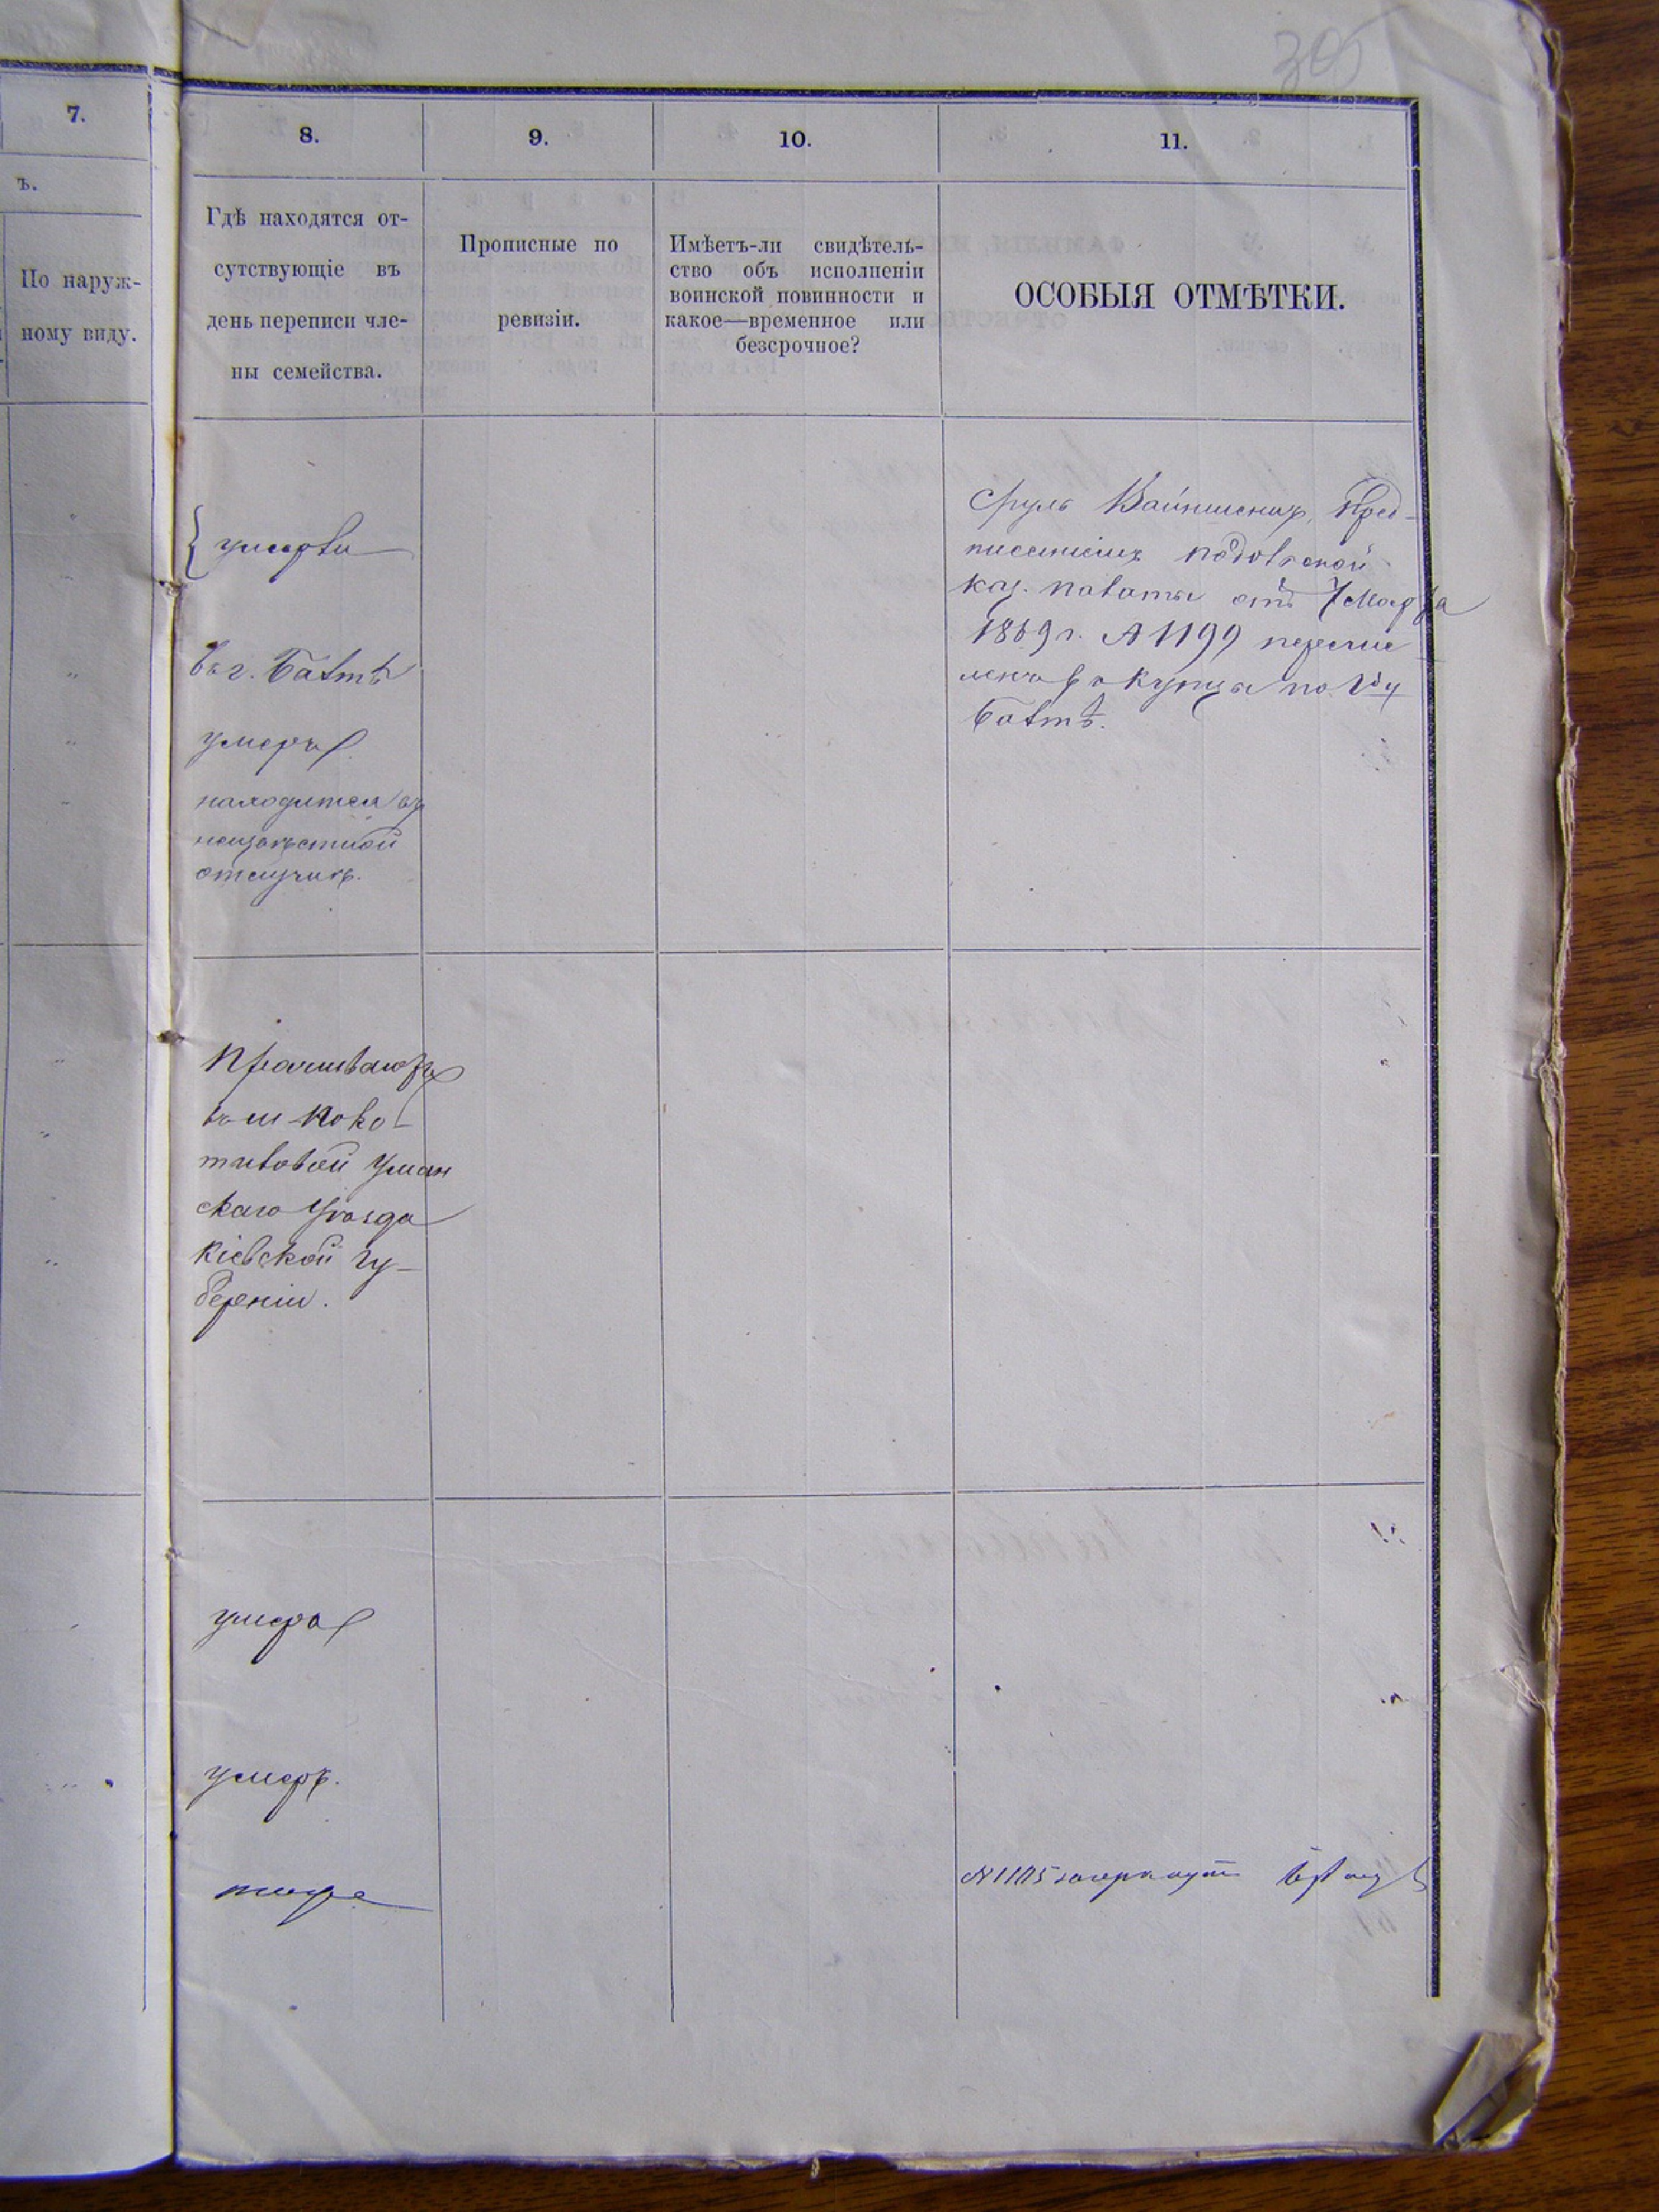 305
7.
8.
9.
10.
11.
ъ.
По наруж-
ному виду.
Гдѣ находятся от-
сутствующіе въ
день переписи чле-
ны семейства.
Прописные по
ревизіи.
Имѣетъ-ли свидѣтель-
ство объ исполненіи
воинской повинности и
какое—временное или
безсрочное?
ОСОБЫЯ ОТМѢТКИ.
умерли
въ г. Балтѣ
умеръ
находится въ
неизвѣстной
отлучкѣ.
Сруль Вайншенкъ, пред-
писаніемъ Подольской
Каз. Палаты отъ 7 Марта
1869 г. № 1199 перечис
ленъ въ купцы по гор
Балтѣ.
Проживаютъ
въ м Коко-
тивовой Уман
скаго Уѣзда
Кіевской гу-
берніи.
умеръ
умеръ.
тоже
№ 1105 зачеркнут